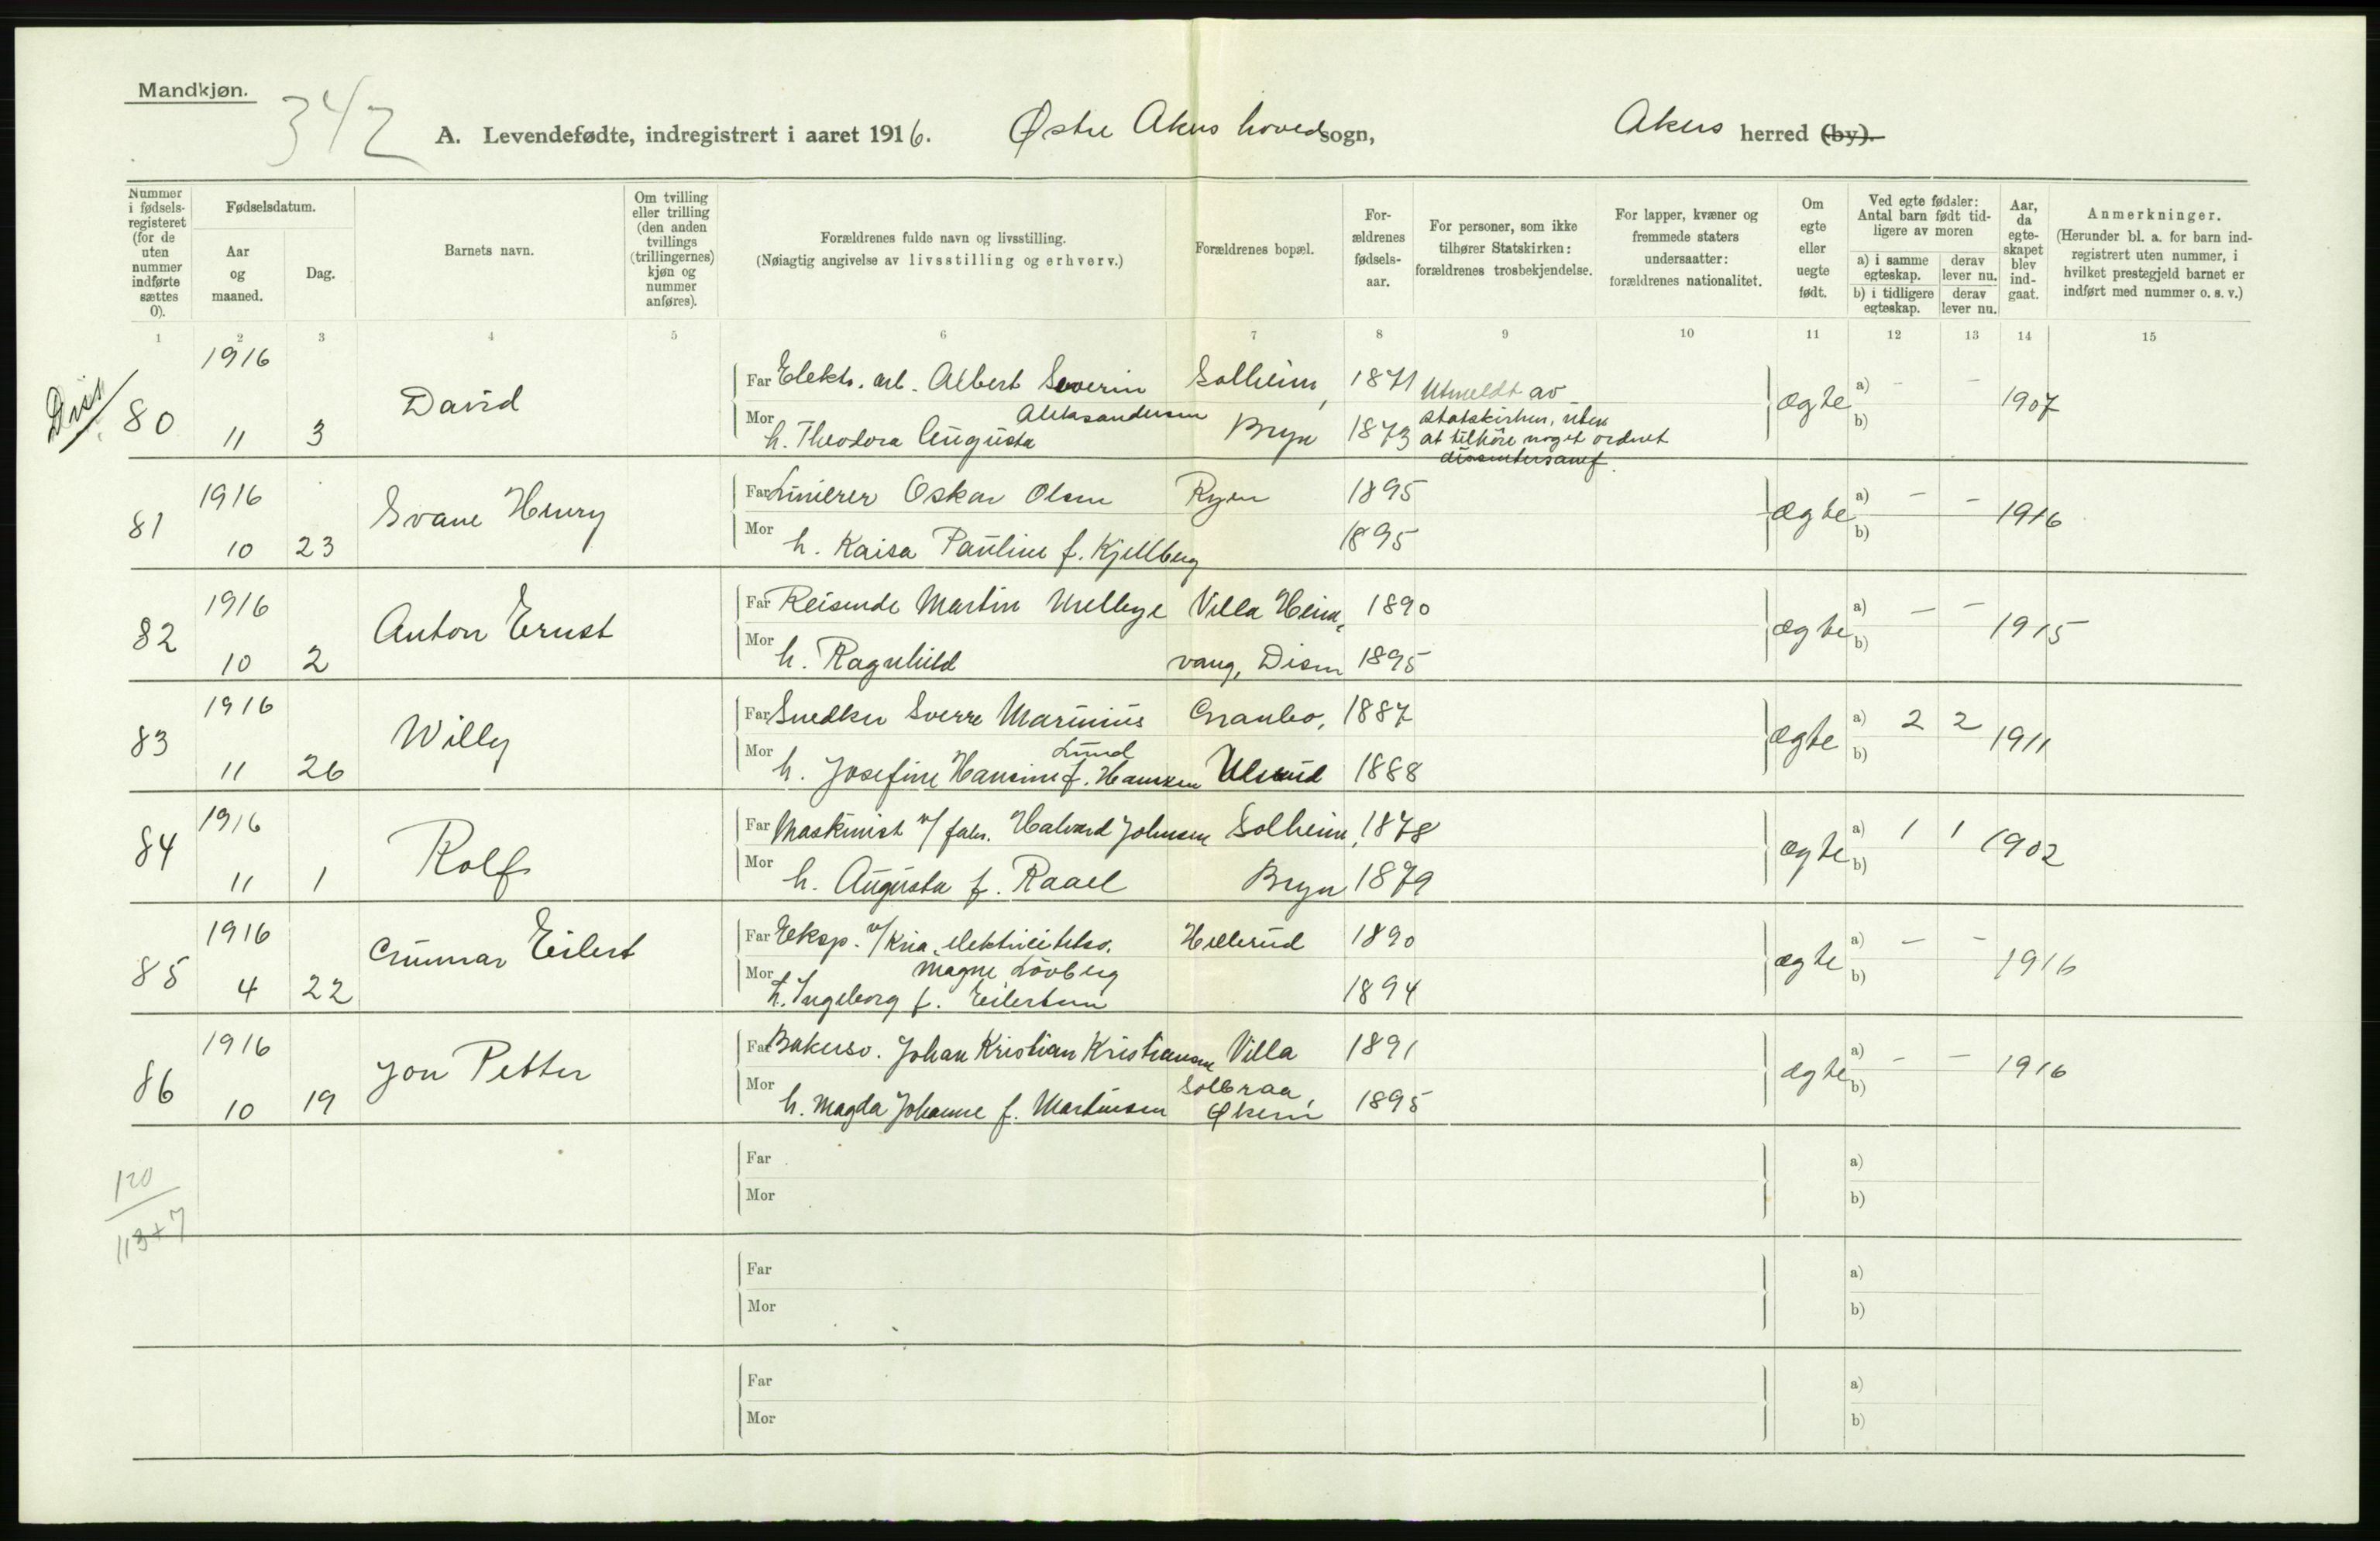 Mandkjøn.
342
A. Levendefødte, indregistrert i aaret 1916. Østre Akers hovedsogn, Akers herred (by).
Nummer i fødselsregisteret (for de uten nummer indførte sættes 0).
Fødselsdatum.
Aar og maaned.
Dag.
Barnets navn.
Om tvilling eller trilling (den anden tvillings (trillingernes) kjøn og nummer anføres).
Forældrenes fulde navn og livsstilling.
(Nøiagtig angivelse av livsstilling og erhverv.)
Forældrenes bopæl.
Forældrenes fødselsaar.
For personer, som ikke tilhører Statskirken: forældrenes trosbekjendelse.
For lapper, kvæner og fremmede staters undersaatter: forældrenes nationalitet.
Om egte eller uegte født.
Ved egte fødsler: Antal barn født tidligere av moren
a) i samme egteskap. derav lever nu.
b) i tidligere egteskap. derav lever nu.
Aar, da egteskapet blev indgaat.
Anmerkninger.
(Herunder bl. a. for barn indregistrert uten nummer, i hvilket prestegjeld barnet er indført med nummer o. s. v.)
1 2 3 4 5 6 7 8 9 10 11 12 13 14 15
Diss
80 1916 11 3 David
Far Elektr. arb. Albert Severin Aleksandersen Solheim, 1871
Mor h. Theodora Augusta Bryn 1873
Utmeldt av
statskirken, uten
at tilhöre noget ordnet
dissentersamf.
ægte a) - - b) 1907
81 1916 10 23 Svane Henry
Far Linierer Oskar Olsen Ryen 1895
Mor h. Kaisa Pauline f. Kjellberg 1895
ægte a) - - b) 1916
82 1916 10 2 Anton Ernst
Far Reisende Martin Villa Heim- 1890
Mor h. Ragnhild vang, Disen 1895
ægte a) - - b) 1915
83 1916 11 26 Willy
Far Snedker Sverre Marinius Lund Granbo, 1887
Mor h. Josefine Hansine f. Hansen Ulsrud 1888
ægte a) 2 2 b) 1911
84 1916 11 1 Rolf
Far Maskinist v/ fabr. Halvard Johnsen Solheim, 1878
Mor h. Augusta f. Raael Bryn 1879
ægte a) 1 1 b) 1902
85 1916 4 22 Gunnar Eilert
Far Eksp. v/ Kria. elektricitetsv. Magne Lövberg Hellerud 1890
Mor h. Ingeborg f. Eilertsen 1894
ægte a) - - b) 1916
86 1916 10 19 Jon Petter
Far Bakersv. Johan Kristian Kristiansen Villa 1891
Mor h. Magda Johanne f. Martinsen Solbraa, Økern 1895
ægte a) - - b) 1916
120
113+7
Far
Mor
a)
b)
Far
Mor
a)
b)
Far
Mor
a)
b)